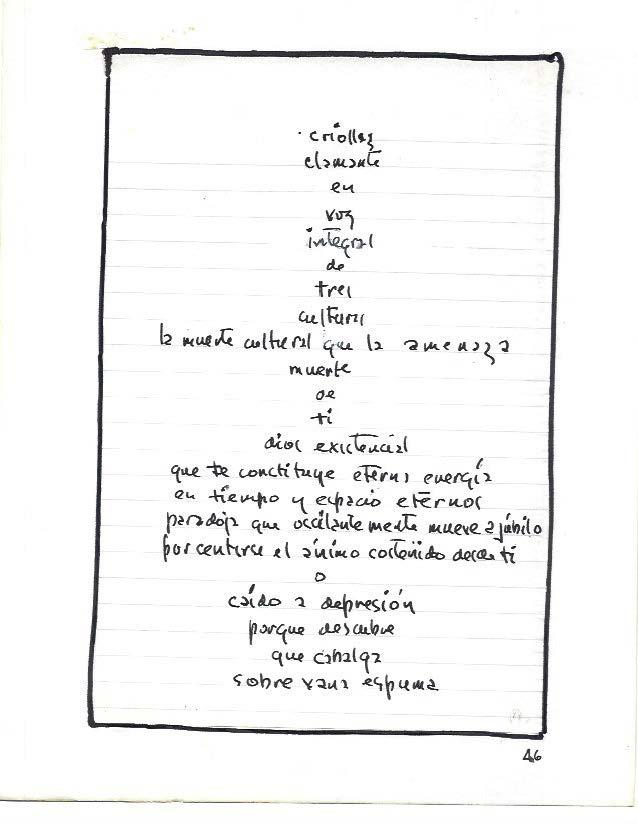 criollez
clamante
en
voz
integral
de
tres
culturas
la muerte cultural que la amenaza
muerte
de
ti
dios existencial
que te constituye eterna energía
en tiempo y espacio eternos
paradoja que oscilantemente mueve a júbilo
por sentirse el ánimo sostenido desde ti
o
caído a depresión
porque descubre
que cabalga
sobre vana espuma
46